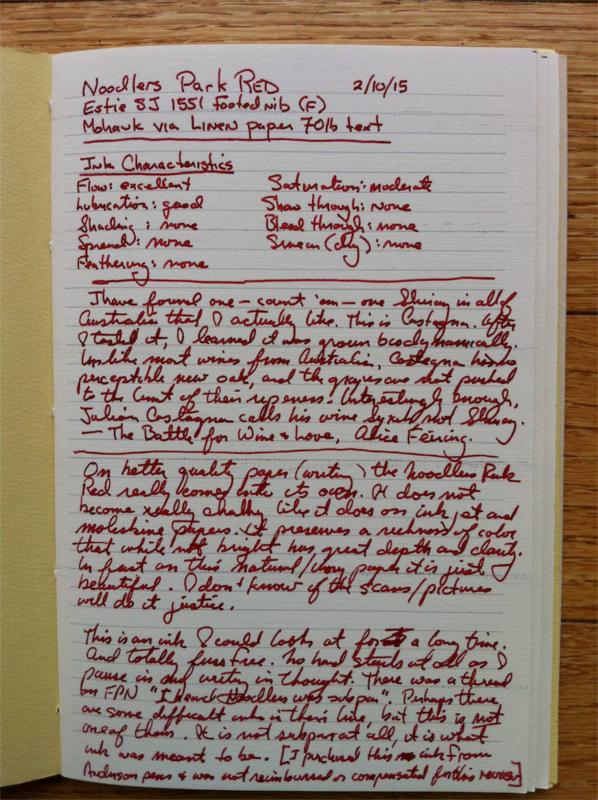 Noodlers Park RED 2/10/15
Estie SJ 1551 footed nib (F)
Mohawk via LINEN paper 70lb text
Ink Characteristics
Flow: excellent Saturation: moderate
Lubrication: good Show through: none
Shading: none Bleed through: none
Spread: none Smear (dry): none
Feathering: none
I have found one – count 'em – one Shiraz in all of
Australia that I actually like. This is Castagna. After
I tasted it, I learned it was grown biodynamically.
Unlike most wines from Australia, Castagna has no
perceptible new oak, and the grapes are not pushed
to the limit of their ripeness. Interestingly enough,
Julian Castagna calls his wine Syrah not Shiraz.
– The Battle for Wine & Love, Alice Feiring.
On better quality paper (writing) the Noodlers Park
Red really comes into its own. It does not
become really chalky like it does on ink jet and
moleskine papers. It preserves a richness of color
that while not bright has great depth and clarity.
In fact on this natural/ivory paper it is just
beautiful. I don't know if the scans/pictures
will do it justice.
This is an ink I could look at for a long time.
And totally fuss free. No hard starts at all as I
pause in my writing in thought. There was a thread
on FPN "I heard Noodlers was subpar". Perhaps there
are some difficult inks in their line, but this is not
one of them. It is not subpar at all, it is what
ink was meant to be. [I purchased this ink from
Anderson pens & was not reimbursed or compensated for this review]